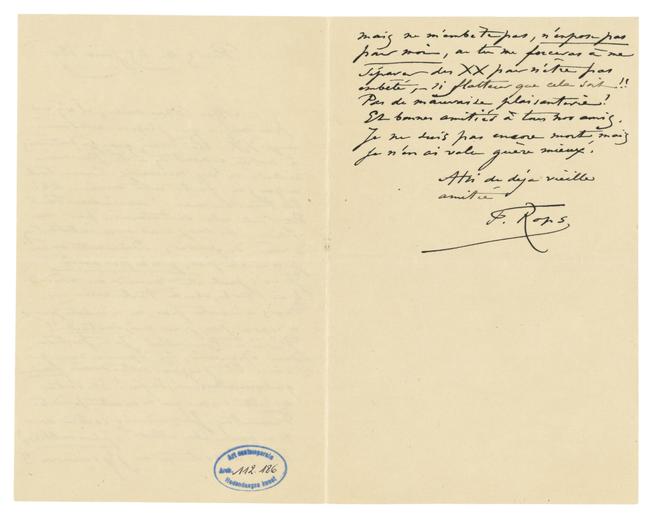 mais ne m'embête pas, n'expose pas
pour moi, ou tu me forceras à me
séparer des XX pour n'être pas
embêté, – si flatteur que cela soit!!
Pas de mauvaise plaisanterie!
Et bonnes amitiés à tous nos amis.
Je ne suis pas encore mort mais
je n'en ai valu guère mieux!
A toi de déjà vieille
amitié
F. Rops
Art contemporain
Arch. 112.186
Hedendaagse kunst